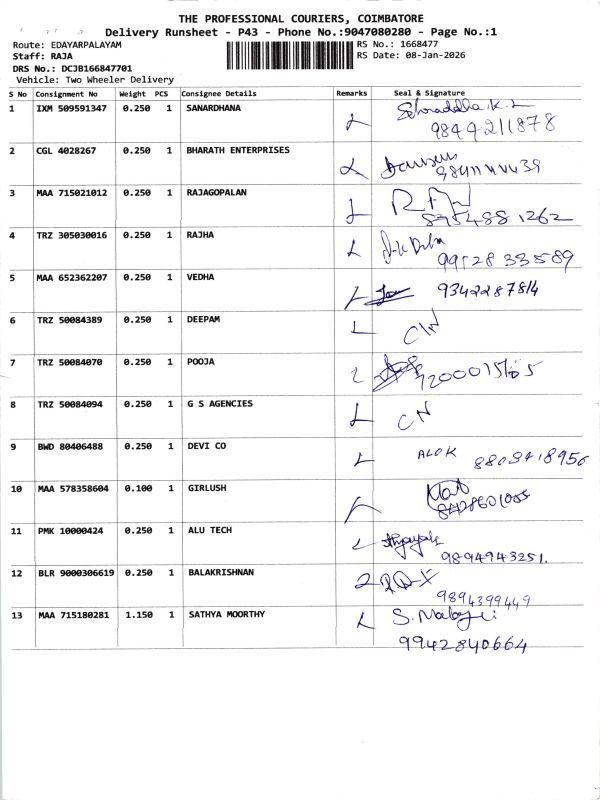 THE PROFESSIONAL COURIERS, COIMBATORE
Delivery Runsheet - P43 - Phone No.:9047080280 - Page No.:1
Route: EDAYARPALAYAM RS No.: 1668477
Staff: RAJA RS Date: 08-Jan-2026
DRS No.: DCJB166847701
Vehicle: Two Wheeler Delivery
S No Consignment No Weight PCS Consignee Details Remarks Seal & Signature
1 IXM 509591347 0.250 1 SANARDHANA
9844211878
2 CGL 4028267 0.250 1 BHARATH ENTERPRISES
3 MAA 715021012 0.250 1 RAJAGOPALAN
4 TRZ 305030016 0.250 1 RAJHA
5 MAA 652362207 0.250 1 VEDHA 9342287814
6 TRZ 50084389 0.250 1 DEEPAM
7 TRZ 50084070 0.250 1 POOJA
8 TRZ 50084094 0.250 1 G S AGENCIES CN
9 BWD 80406488 0.250 1 DEVI CO ALOK
10 MAA 578358604 0.100 1 GIRLUSH
11 PMK 10000424 0.250 1 ALU TECH
9894943251.
12 BLR 9000306619 0.250 1 BALAKRISHNAN
9894399449
13 MAA 715180281 1.150 1 SATHYA MOORTHY
9942840664